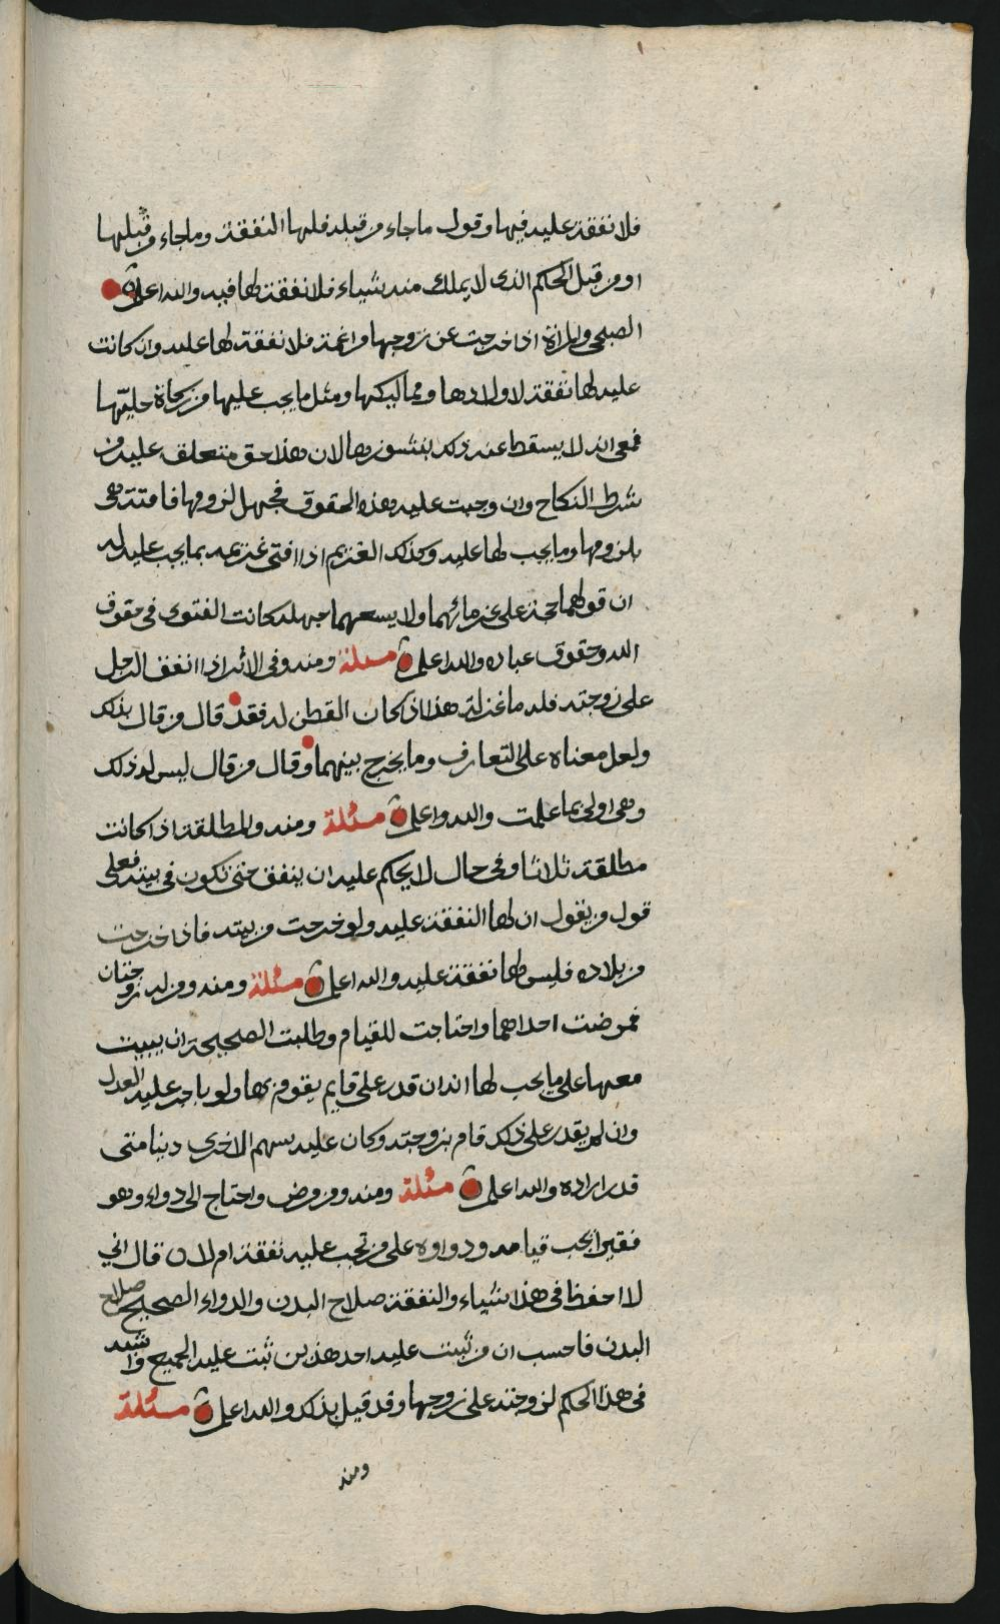 فلا نفقة عليه فيها وقول ما جاء من قبله فلها النفقة وما جاء من قبلها
او من قبل الحكم الذي لا يملك منه شياء فلا نفقة لها فيه والله اعلم
الصبحي والمراة اذا خرجت عن زوجها مراغمة فلا نفقة لها عليه وان كانت
عليه لها نفقة لاولادها ومماليكها ومثل ما يجب عليها من زكاة حليّها
فمعي انه لا يسقط عنه ذلك بنشوزها لان هذا حق متعلق عليه من
شرط النكاح وان وجبت عليه هذه الحقوق فجهل لزومها فافتته هي
بلزومها وما يجب لها عليه وكذلك الغريم اذا افتى غريمه بما يجب عليه له
ان قولهما حجة على غرمائهما ولا يسعهما جهله كانت الفتوى في حقوق
الله وحقوق عباده والله اعلم مسئلة ومنه وفي الاثر اذا انفق الرجل
على زوجته فله ما غزلته هذا اذا كان القطن له فقد قال من قال بذلك
ولعل معناه على التعارف وما يخرج بينهما وقال من قال ليس له ذلك
وهي اولى بما علمت والله واعلم مسئلة ومنه والمطلقة اذا كانت
مطلقة ثلاثا وفي حال لا يحكم عليه ان ينفق حتى تكون في بيته فعلى
قول من يقول ان لها النفقة عليه ولو خرجت من بيته فاذا خرجت
من بلاده فليس لها نفقة عليه والله اعلم مسئلة ومنه ومن له زوجتان
فمرضت احداهما واحتاجت للقيام وطلبت الصحيحة ان يبيت
معها على ما يجب لها انه ان قدر على قايم يقوم بها ولو باجر عليه العدل
وان لم يقدر على ذلك قام بزوجته وكان عليه سهم الاخرى دينا متى
قدر اداه والله اعلم مسئلة ومنه ومن مرض واحتاج الى دواء وهو
فقير ايجب قيامه ودواوه على من تجب عليه نفقة ام لا ن قال اني
لا احفظ في هذا شياء والنفقة صلاح البدن والدواء الصحيح صلاح
البدن فاحسب ان من ثبت عليه احد هذين ثبت عليه الجميع واشبه
في هذا الحكم لزوجته على زوجها وقد قيل بذلك والله اعلم مسئلة
ومنه